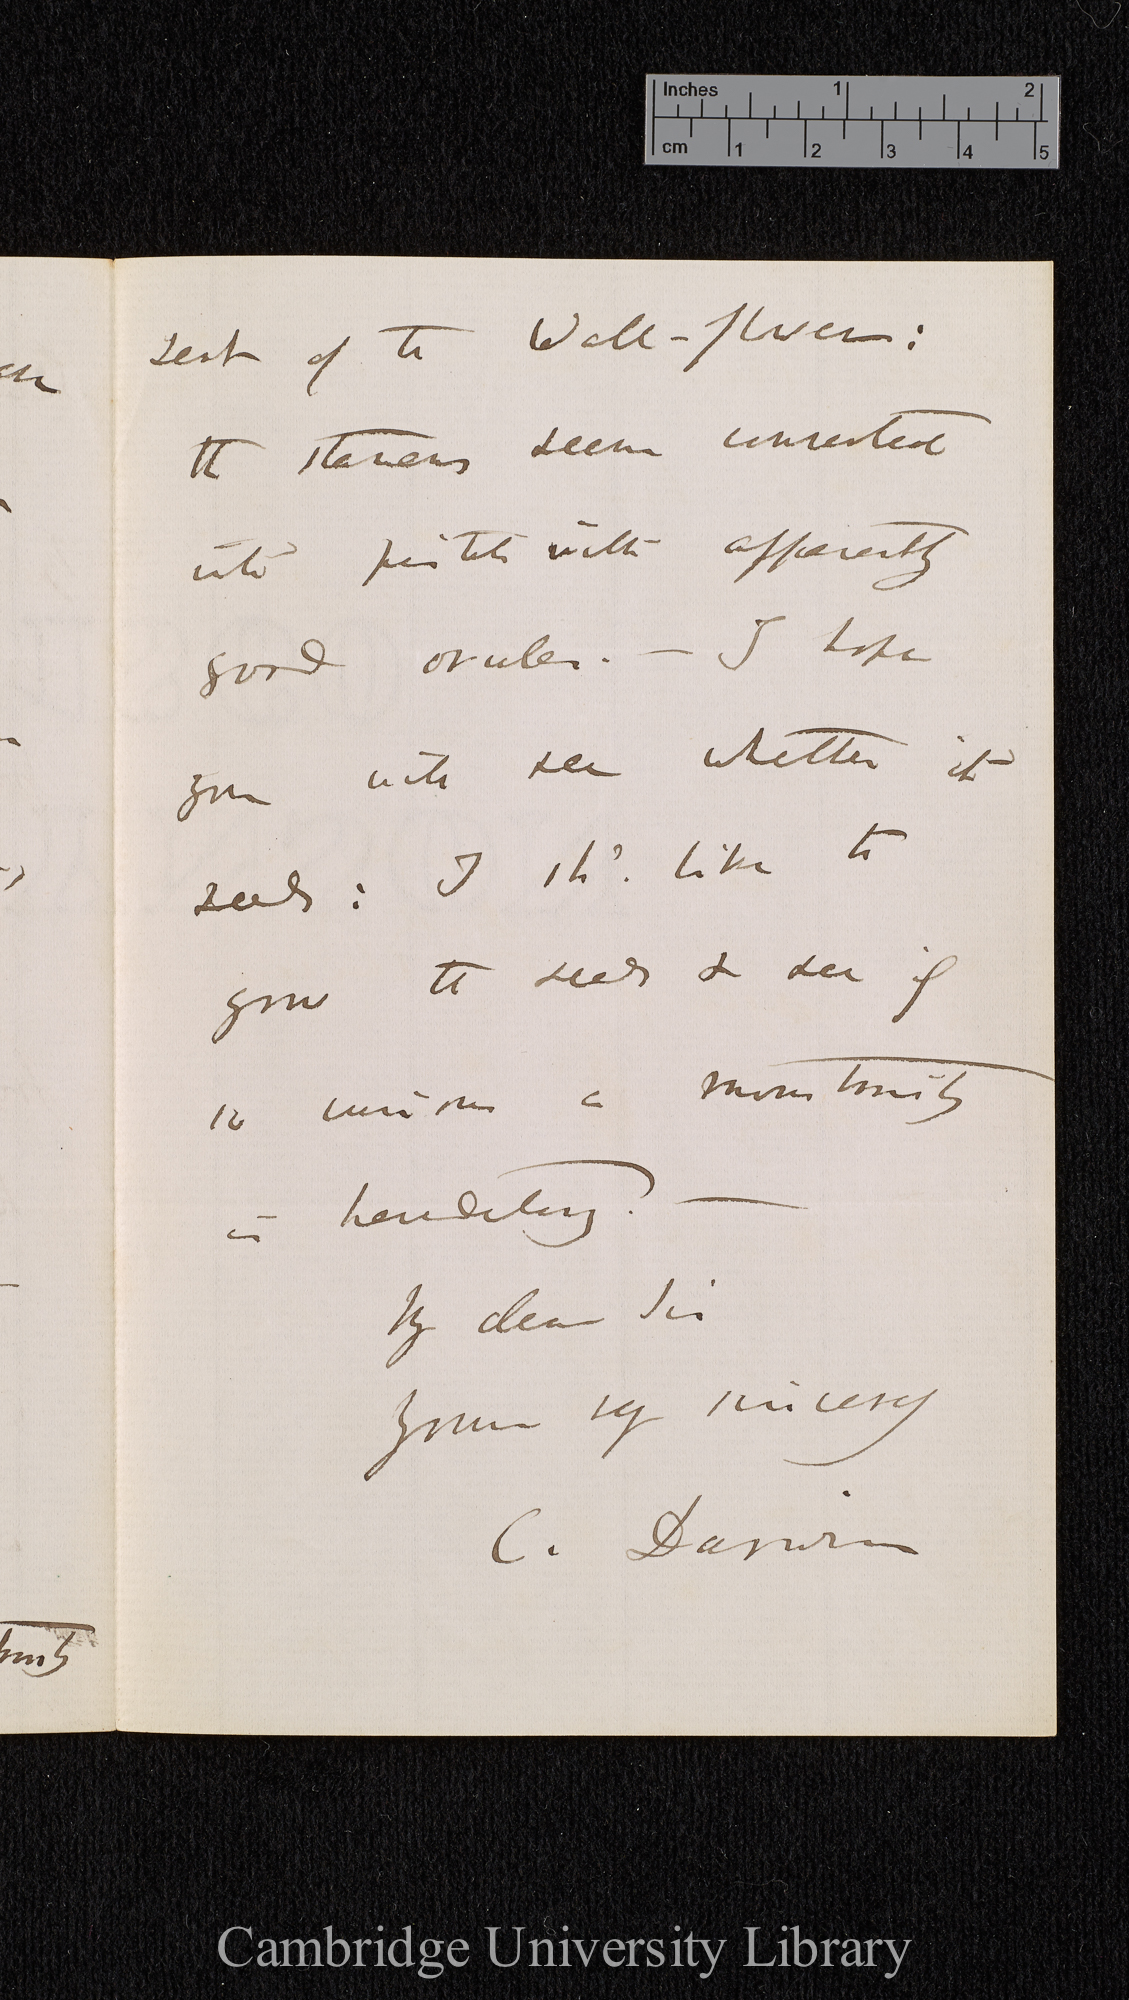 Inches 1 2
cm 1 2 3 4 5
sent of the Wall-flower:
the stamens seem converted
into pistils with apparently
good ovules. — I hope
you will see whether it
seeds: I shd. like to
grow the seeds & see if
so curious a monstrosity
is hereditary? —
My dear Sir
Yours vy sincerely
C. Darwin
Cambridge University Library